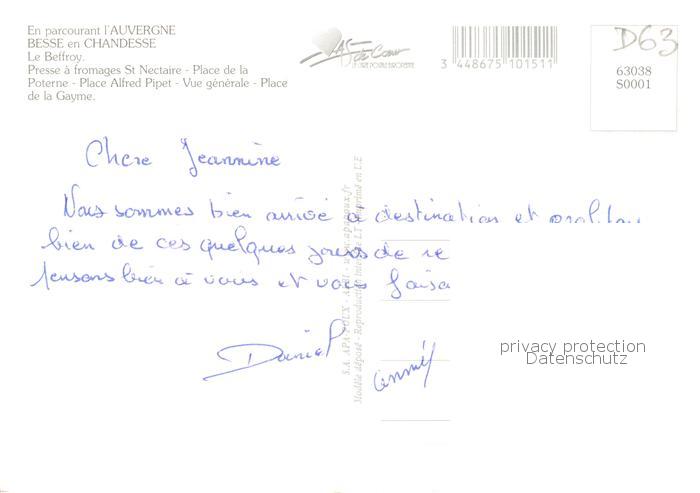 En parcourant l'AUVERGNE
BESSE en CHANDESSE
Le Beffroy.
Presse à fromages St Nectaire - Place de la
Poterne - Place Alfred Pipet - Vue générale - Place
de la Gayme.
As de Coeur
LA CARTE POSTALE EUROPEENNE
3 448675 101511
D63
63038
S0001
Chere Jeannine
Nous sommes bien arrivé à destination et
bien de ces quelques jours de re
pensons bien à vous et vous faisa
Daniel
S.A. APA-POUX - ALBI - www.apapoux.fr
Modèle déposé - Reproduction interdite LT Imprimé en UE
privacy protection
Datenschutz